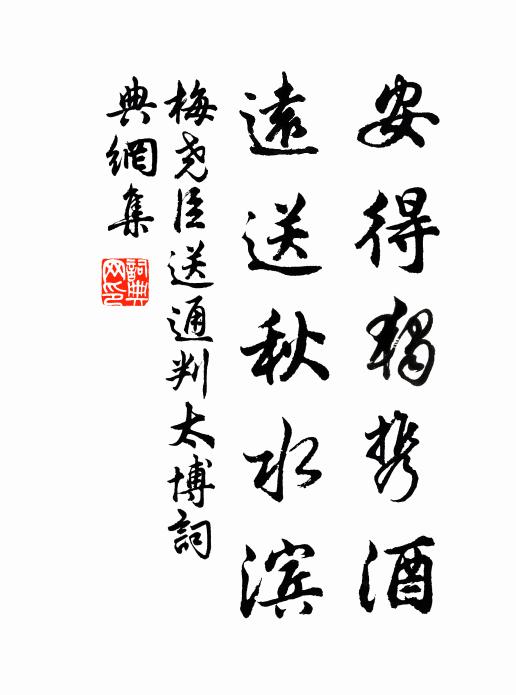 安得獨携酒
遠送秋水滨
梅尧臣送通判太博詞
典網集
詞典网印